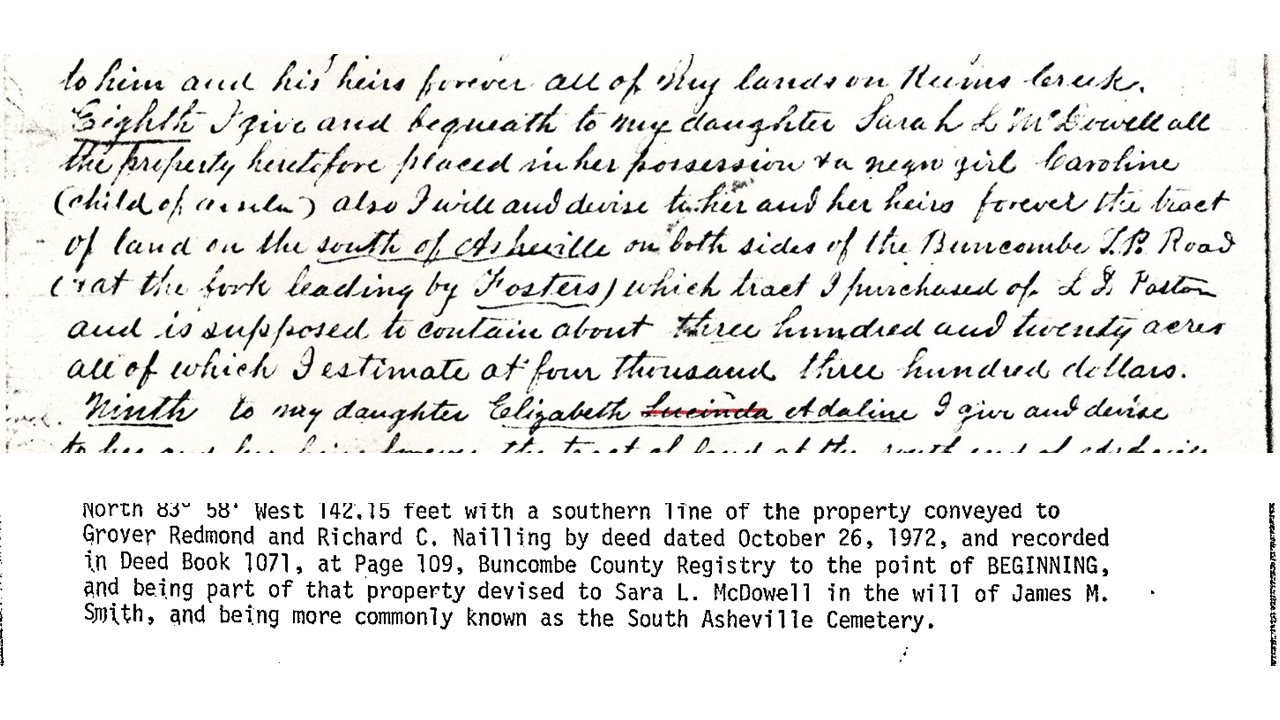 to him and his heirs forever all of my lands on Reims Creek.
Eighth I give and bequeath to my daughter Sarah L McDowell all
the property heretofore placed in her possession & a negro girl Caroline
(child of ) also I will and devise to her and her heirs forever the tract
of land on the south of Asheville on both sides of the Buncombe T.P. Road
( at the fork leading by Fosters) which tract I purchased of L D Poston
and is supposed to contain about three hundred and twenty acres
all of which I estimate at four thousand three hundred dollars.
Ninth to my daughter Elizabeth Lucinda Adaline I give and devise
to her and her heirs forever the tract of land at the south end of Asheville
North 83° 58' West 142.15 feet with a southern line of the property conveyed to
Grover Redmond and Richard C. Nailling by deed dated October 26, 1972, and recorded
in Deed Book 1071, at Page 109, Buncombe County Registry to the point of BEGINNING,
and being part of that property devised to Sara L. McDowell in the will of James M.
Smith, and being more commonly known as the South Asheville Cemetery.